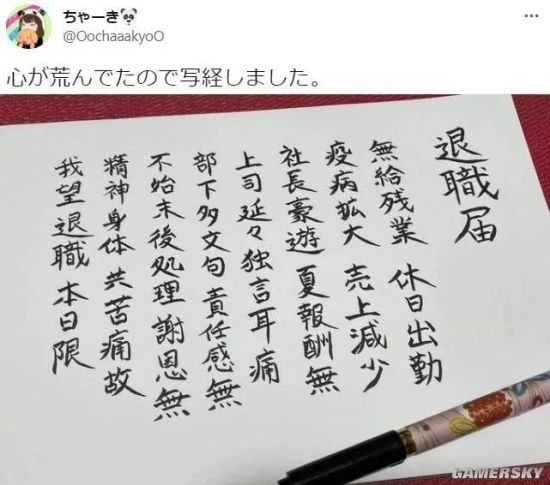 ちゃーき🐼
@OochaaakyoO
心が荒んでたので写経しました。
退職届
無給残業 休日出勤
疫病拡大 売上減少
社長豪遊 夏報酬無
上司延々独言耳痛
部下多文句責任感無
不始末後処理 謝恩無
精神身体 共苦痛故
我望退職 本日限
GAMERSKY